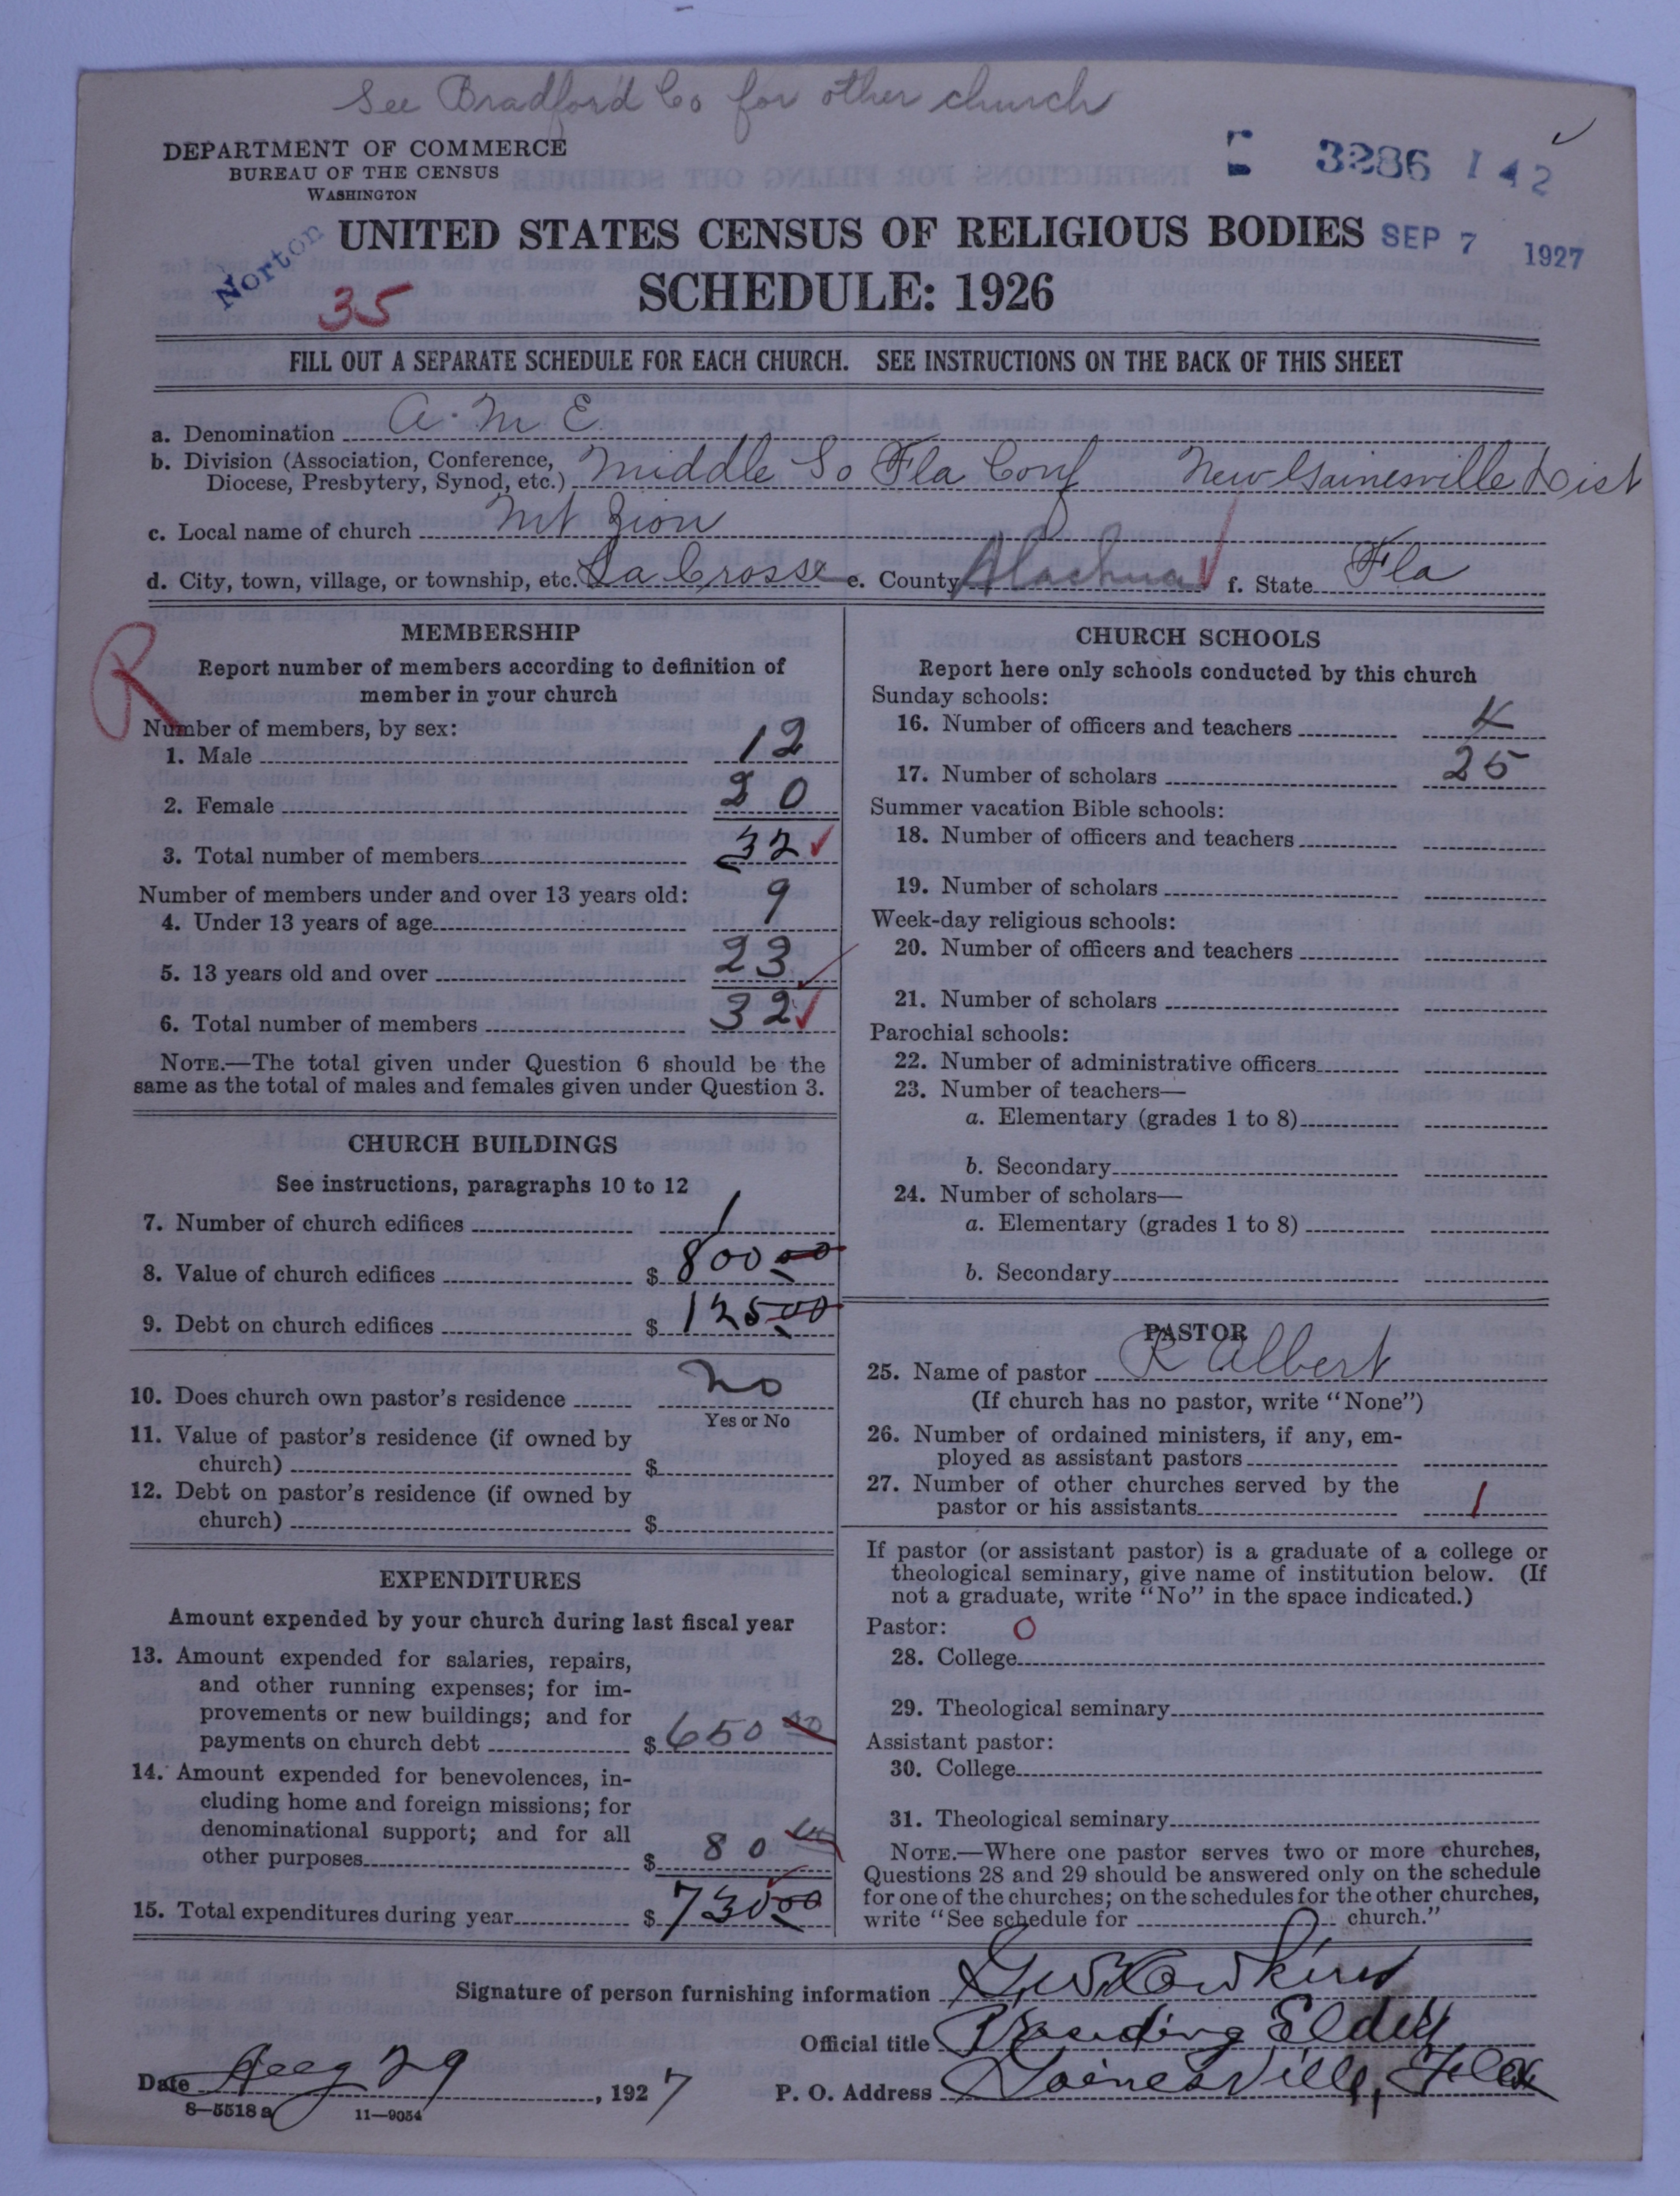 See Bradford Co for other church
DEPARTMENT OF COMMERCE
BUREAU OF THE CENSUS
WASHINGTON
3286 142
Norton
UNITED STATES CENSUS OF RELIGIOUS BODIES
SEP 7 1927
35
SCHEDULE: 1926
FILL OUT A SEPARATE SCHEDULE FOR EACH CHURCH. SEE INSTRUCTIONS ON THE BACK OF THIS SHEET
a. Denomination A. M E
b. Division (Association, Conference,
Diocese, Presbytery, Synod, etc.) Middle So Fla Conf New Gainesville Dist
c. Local name of church Mt Zion
d. City, town, village, or township, etc. La Crosse e. County Alachua f. State Fla
R
MEMBERSHIP
Report number of members according to definition of
member in your church
Number of members, by sex:
1. Male 12
2. Female 20
3. Total number of members 32
Number of members under and over 13 years old:
4. Under 13 years of age 9
5. 13 years old and over 23
6. Total number of members 32
NOTE.—The total given under Question 6 should be the
same as the total of males and females given under Question 3.
CHURCH BUILDINGS
See instructions, paragraphs 10 to 12
7. Number of church edifices 1
8. Value of church edifices $ 800 00
9. Debt on church edifices $ 125 00
10. Does church own pastor's residence No
Yes or No
11. Value of pastor's residence (if owned by
church) $
12. Debt on pastor's residence (if owned by
church) $
EXPENDITURES
Amount expended by your church during last fiscal year
13. Amount expended for salaries, repairs,
and other running expenses; for im-
provements or new buildings; and for
payments on church debt $ 650 00
14. Amount expended for benevolences, in-
cluding home and foreign missions; for
denominational support; and for all
other purposes $ 80 00
15. Total expenditures during year $ 730 00
CHURCH SCHOOLS
Report here only schools conducted by this church
Sunday schools:
16. Number of officers and teachers 4
17. Number of scholars 25
Summer vacation Bible schools:
18. Number of officers and teachers
19. Number of scholars
Week-day religious schools:
20. Number of officers and teachers
21. Number of scholars
Parochial schools:
22. Number of administrative officers
23. Number of teachers—
a. Elementary (grades 1 to 8)
b. Secondary
24. Number of scholars—
a. Elementary (grades 1 to 8)
b. Secondary
PASTOR
25. Name of pastor R Albert
(If church has no pastor, write "None")
26. Number of ordained ministers, if any, em-
ployed as assistant pastors
27. Number of other churches served by the
pastor or his assistants 1
If pastor (or assistant pastor) is a graduate of a college or
theological seminary, give name of institution below. (If
not a graduate, write "No" in the space indicated.)
Pastor: 0
28. College
29. Theological seminary
Assistant pastor:
30. College
31. Theological seminary
NOTE.—Where one pastor serves two or more churches,
Questions 28 and 29 should be answered only on the schedule
for one of the churches; on the schedules for the other churches,
write "See schedule for church."
Signature of person furnishing information G. W. Hawkins
Official title Presiding Elder
Date Aug 29, 1927 P. O. Address Gainesville, Fla
8—5518 a 11—9054